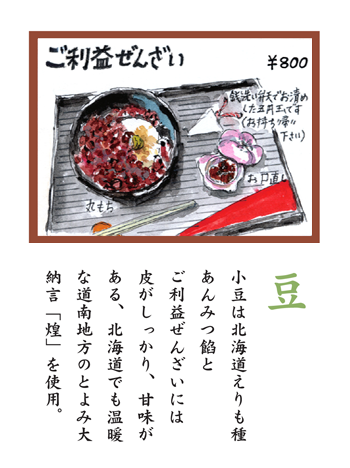 ご利益ぜんざい
¥800
銭洗い弁天でお清め
した五円玉です
(お持ち帰り
下さい)
お口直し
丸もち
豆
小豆は北海道えりも種
あんみつ餡と
ご利益ぜんざいには
皮がしっかり、甘味が
ある、北海道でも温暖
な道南地方のとよみ大
納言「煌」を使用。